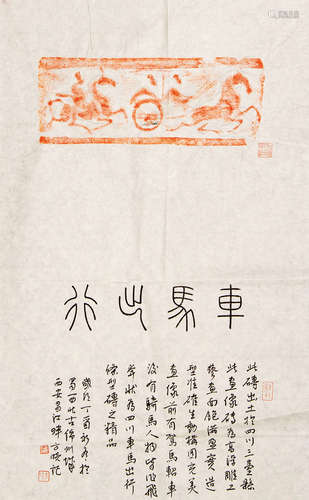 車馬出行
此磚出土於四川三臺縣
此畫像磚為高浮雕工
藝畫面飽滿畫造
型準確生動構圖完美
畫像前有駕馬軺車
後有騎馬人物飛
奔狀為四川車馬出行
條型磚之精品
歲在丁酉新春於
蜀西北古綿州城
西安昌江畔記